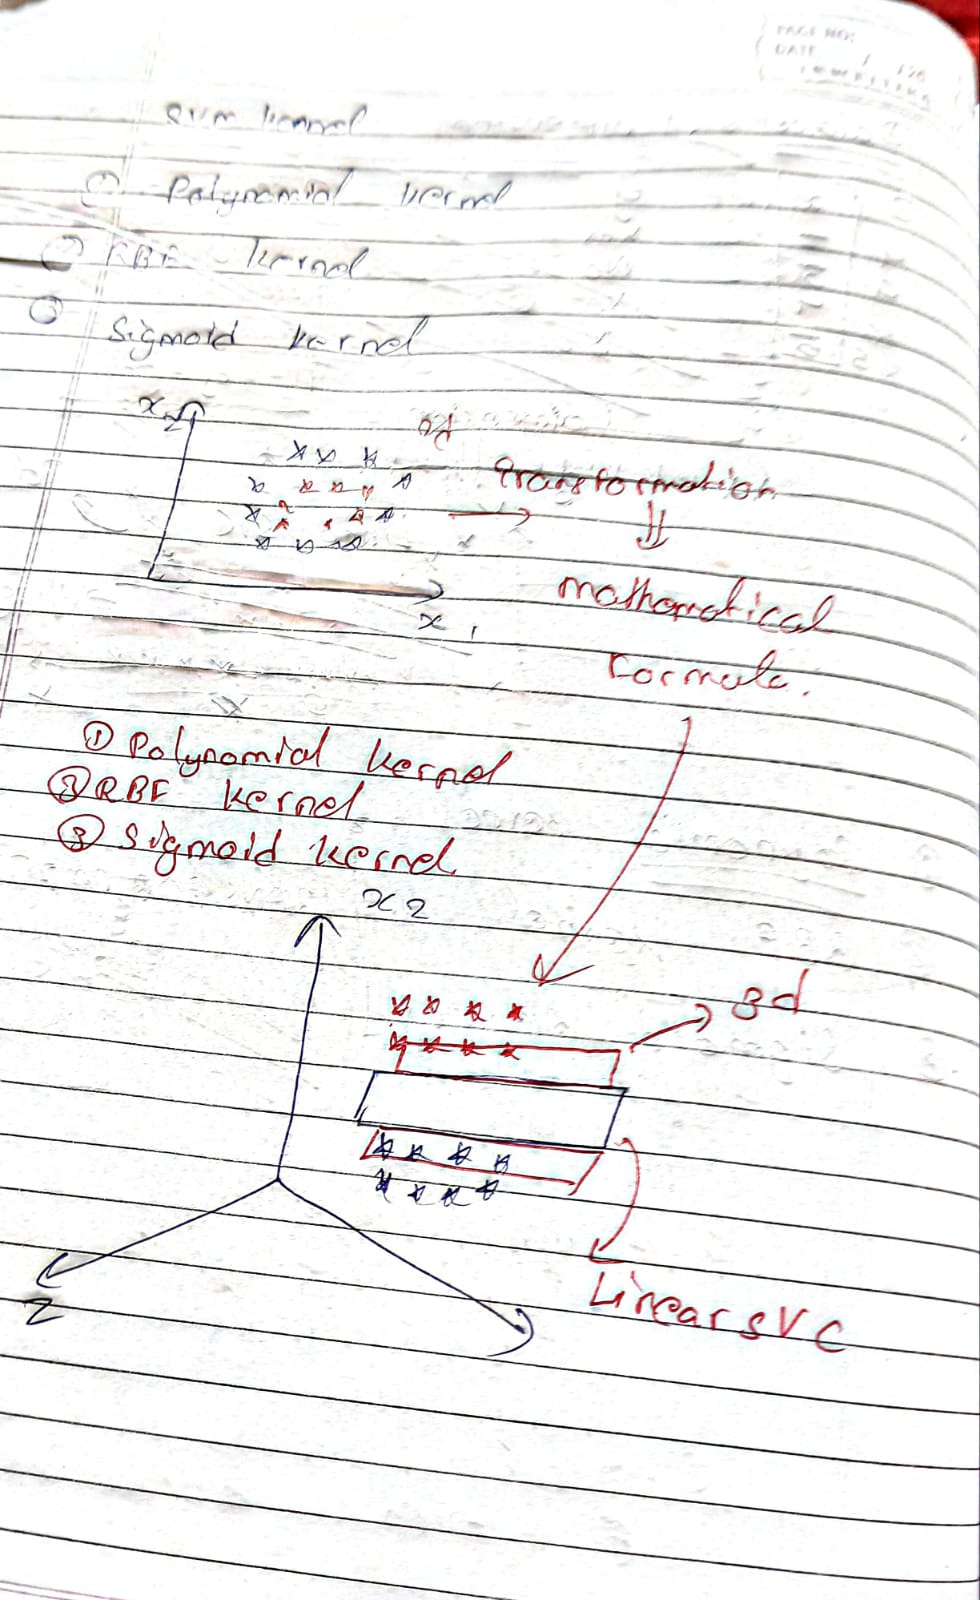 PAGE NO:
DATE
SVM kernel
① Polynomial kernel
② RBF kernel
③ Sigmoid kernel
x2
2d
Transformation
x1
mathematical
formula.
① Polynomial kernel
② RBF kernel
③ Sigmoid kernel
x2
3d
Z
Linear SVC